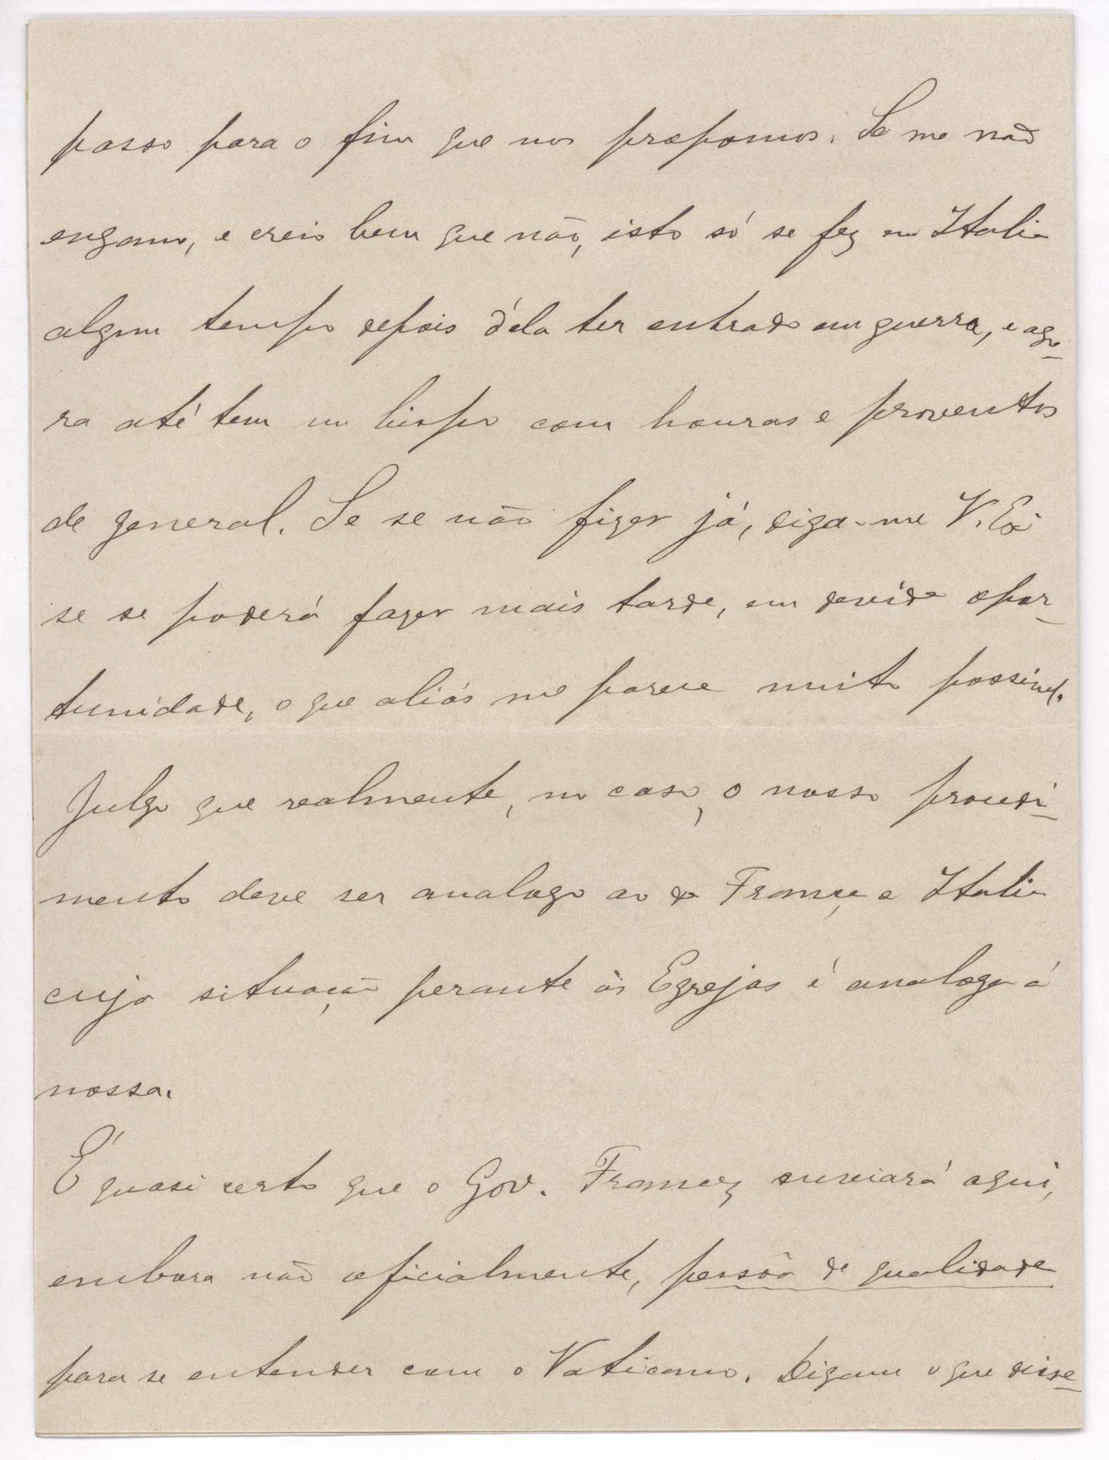 passo para o fim que nos propomos. Se me não
engano, e creio bem que não, isto só se fez em Italia
algum tempo depois d'ela ter entrado em guerra, e ago-
ra até tem um bispo com honras e proventos
de general. Se se não fizer já, diga-me V. Exª
se se poderá fazer mais tarde, em devida opor-
tunidade, o que aliás me parece muito possivel.
Julgo que realmente, no caso, o nosso procedi-
mento deve ser analogo ao da França e Italia
cuja situação perante as Egrejas é analoga á
nossa.
É quasi certo que o Gov. Francez enviará aqui,
embora não oficialmente, pessôa de qualidade
para se entender com o Vaticano. Digam o que disse-